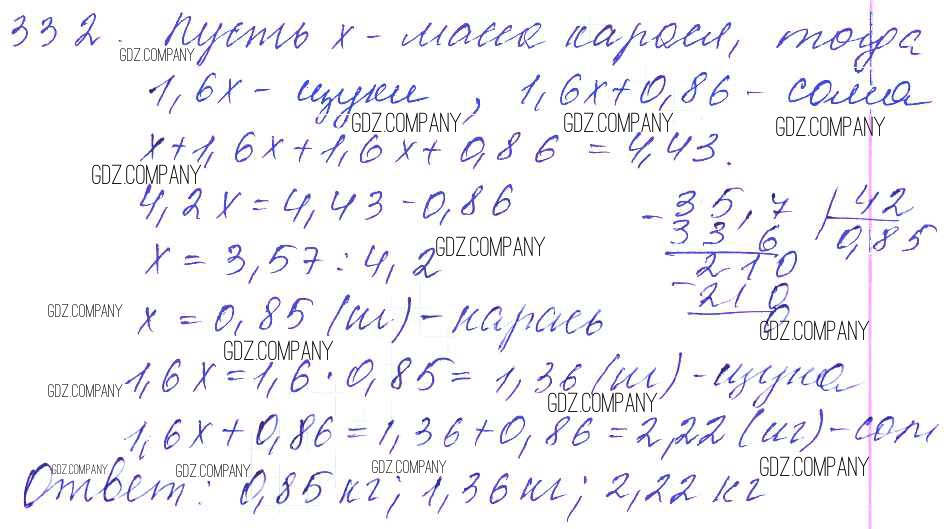 332. Пусть x - масса карася, тогда
GDZ.COMPANY
1,6x - щуки, 1,6x+0,86 - сома
GDZ.COMPANY GDZ.COMPANY GDZ.COMPANY
x+1,6x+1,6x+0,86 = 4,43.
GDZ.COMPANY
4,2x = 4,43 - 0,86
- 35,7 42
33 6 0,85
GDZ.COMPANY
x = 3,57 : 4,2
210
- 210
0
GDZ.COMPANY
x = 0,85 (кг) - карась
GDZ.COMPANY
GDZ.COMPANY
1,6x = 1,6 · 0,85 = 1,36 (кг) - щука
GDZ.COMPANY
GDZ.COMPANY
1,6x + 0,86 = 1,36 + 0,86 = 2,22 (кг) - сом
GDZ.COMPANY GDZ.COMPANY GDZ.COMPANY GDZ.COMPANY
Ответ: 0,85 кг; 1,36 кг; 2,22 кг